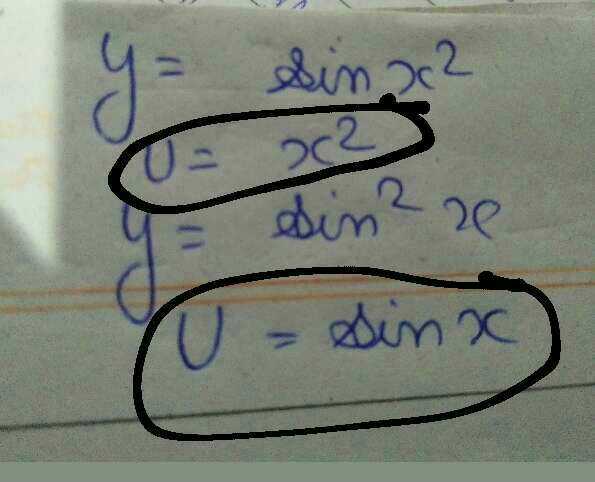 y = sin x²
U = x²
y = sin² x
U = sin x